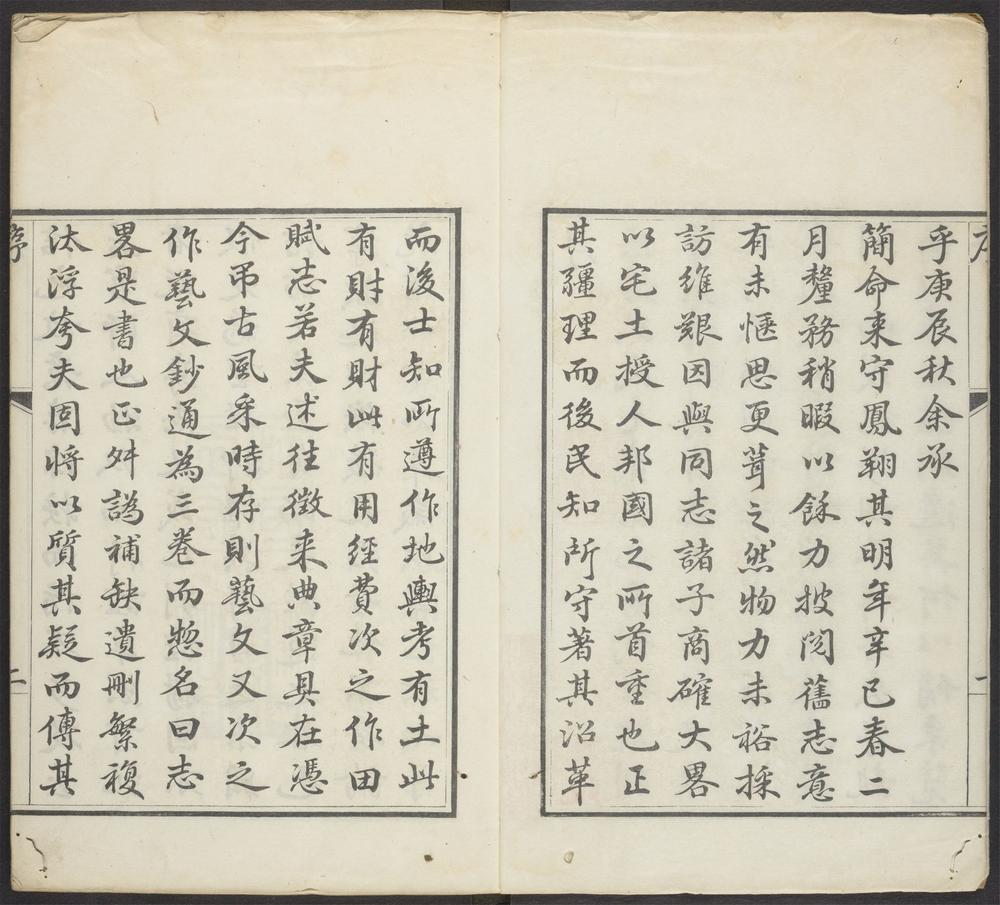 乎庚辰秋余承
簡命来守鳳翔其明年辛巳春二
月釐務稍暇以餘力披閲舊志意
有未愜思更葺之然物力未裕採
訪維艱因與同志諸子商確大畧
以宅土授人邦國之所首重也正
其疆理而後民知所守著其沿革
而後士知所遵作地輿考有土此
有財有財此有用經費次之作田
賦志若夫述往徵来典章具在憑
今弔古風采時存則藝文又次之
作藝文鈔通為三卷而惣名曰志
畧是書也正舛譌補缺遺刪繁複
汰浮夸夫固将以質其疑而傳其
序
二